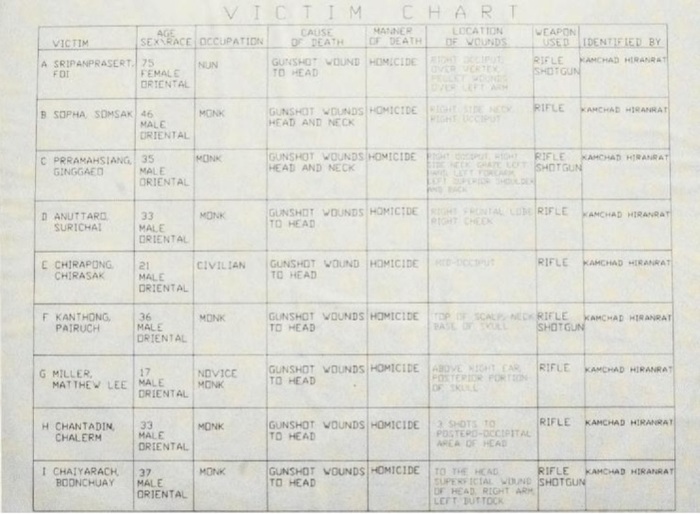 VICTIM CHART
VICTIM AGE SEX\RACE OCCUPATION CAUSE OF DEATH MANNER OF DEATH LOCATION OF WOUNDS WEAPON USED IDENTIFIED BY
A SRIPANPRASERT, FOI
75 FEMALE ORIENTAL
NUN
GUNSHOT WOUND TO HEAD
HOMICIDE
RIGHT OCCIPUT, OVER VERTEX, PELLET WOUNDS OVER LEFT ARM
RIFLE SHOTGUN
KAMCHAD HIRANRAT
B SOPHA, SOMSAK
46 MALE ORIENTAL
MONK
GUNSHOT WOUNDS HEAD AND NECK
HOMICIDE
RIGHT SIDE NECK, RIGHT OCCIPUT
RIFLE
KAMCHAD HIRANRAT
C PRRAMAHSIANG, GINGGAEO
35 MALE ORIENTAL
MONK
GUNSHOT WOUNDS HEAD AND NECK
HOMICIDE
RIGHT OCCIPUT, RIGHT SIDE NECK, GRAZE LEFT HAND, LEFT FOREARM, LEFT SUPERIOR SHOULDER AND BACK
RIFLE SHOTGUN
KAMCHAD HIRANRAT
D ANUTTARO, SURICHAI
33 MALE ORIENTAL
MONK
GUNSHOT WOUNDS TO HEAD
HOMICIDE
RIGHT FRONTAL LOBE RIGHT CHEEK
RIFLE
KAMCHAD HIRANRAT
E CHIRAPONG, CHIRASAK
21 MALE ORIENTAL
CIVILIAN
GUNSHOT WOUND TO HEAD
HOMICIDE
MID-OCCIPUT
RIFLE
KAMCHAD HIRANRAT
F KANTHONG, PAIRUCH
36 MALE ORIENTAL
MONK
GUNSHOT WOUNDS TO HEAD
HOMICIDE
TOP OF SCALP, NECK BASE OF SKULL
RIFLE SHOTGUN
KAMCHAD HIRANRAT
G MILLER, MATTHEW LEE
17 MALE ORIENTAL
NOVICE MONK
GUNSHOT WOUNDS TO HEAD
HOMICIDE
ABOVE RIGHT EAR, POSTERIOR PORTION OF SKULL
RIFLE
KAMCHAD HIRANRAT
H CHANTADIN, CHALERM
33 MALE ORIENTAL
MONK
GUNSHOT WOUNDS TO HEAD
HOMICIDE
3 SHOTS TO POSTERO-OCCIPITAL AREA OF HEAD
RIFLE
KAMCHAD HIRANRAT
I CHAIYARACH, BOONCHUAY
37 MALE ORIENTAL
MONK
GUNSHOT WOUNDS TO HEAD
HOMICIDE
TO THE HEAD, SUPERFICIAL WOUND OF HEAD, RIGHT ARM, LEFT BUTTOCK
RIFLE SHOTGUN
KAMCHAD HIRANRAT